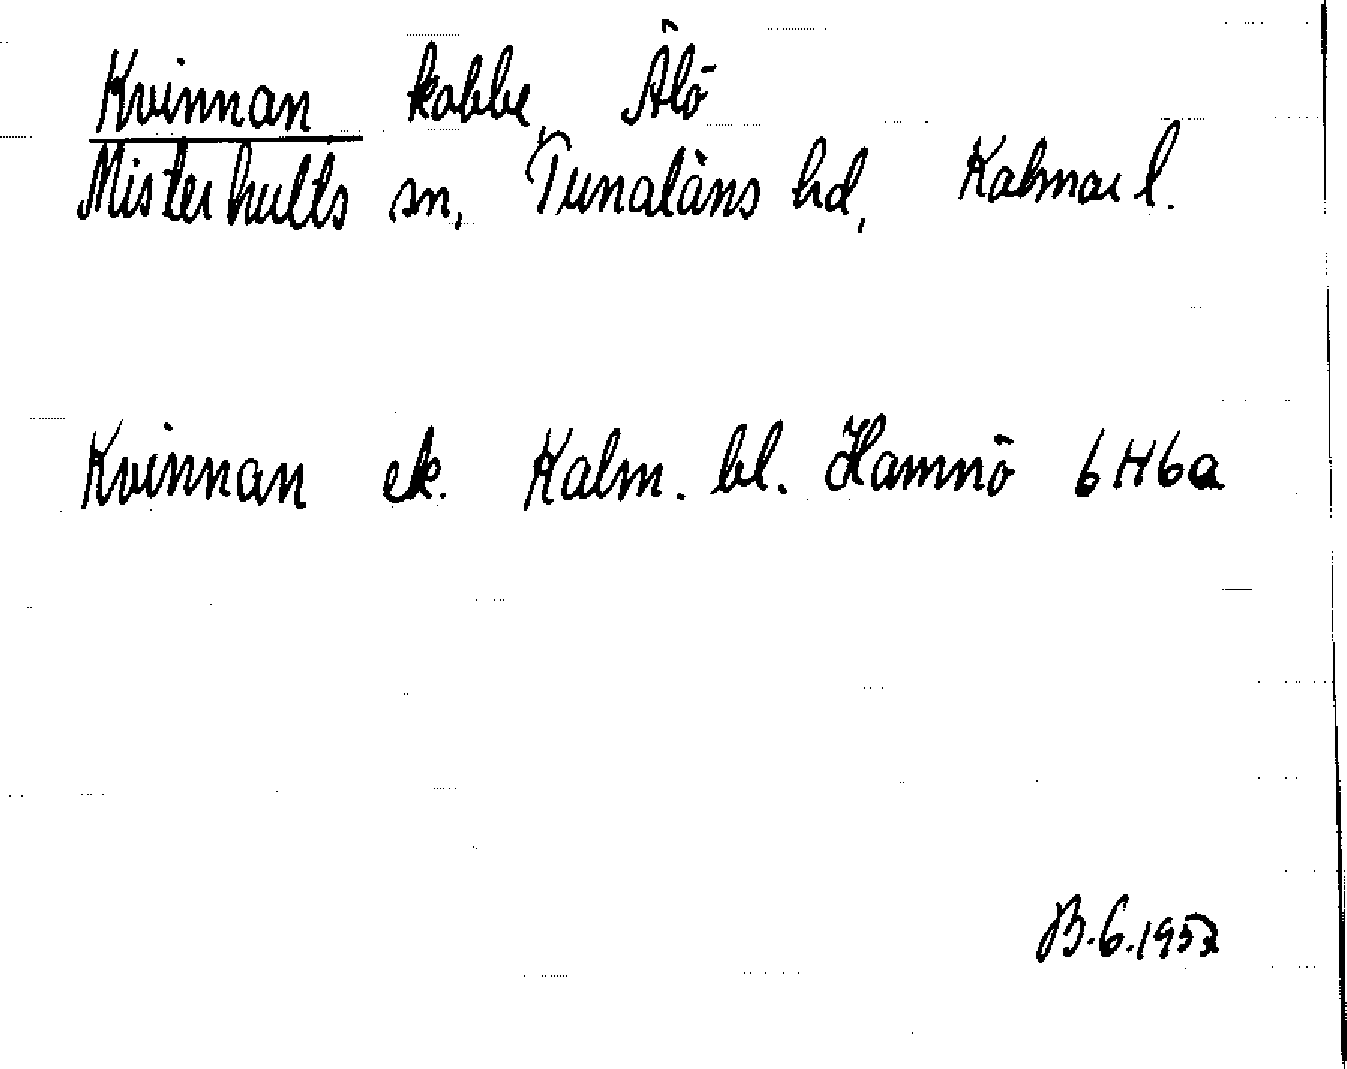 Kvinnan kobbe, Älö
Misterhults sn, Tunaläns hd, Kalmar l.
Kvinnan ek. Kalm. bl. Hamnö 6H6a
B.G.1957